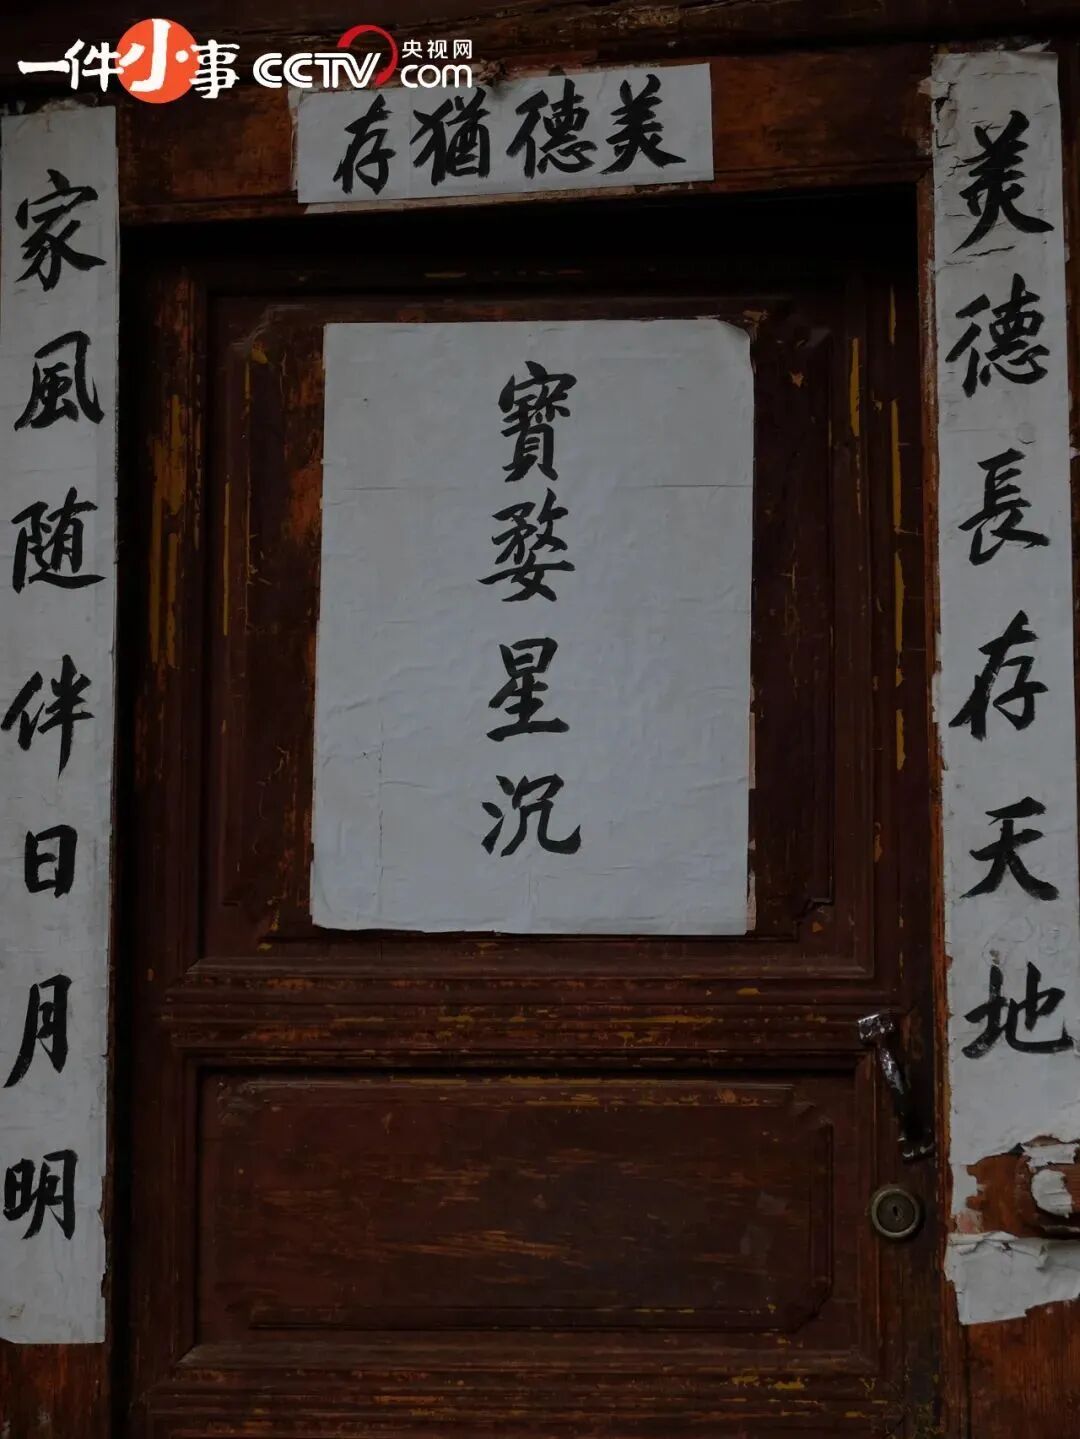 一件小事 CCTV.com 央视网
美德猶存
美德長存天地
寶婺星沉
家風随伴日月明